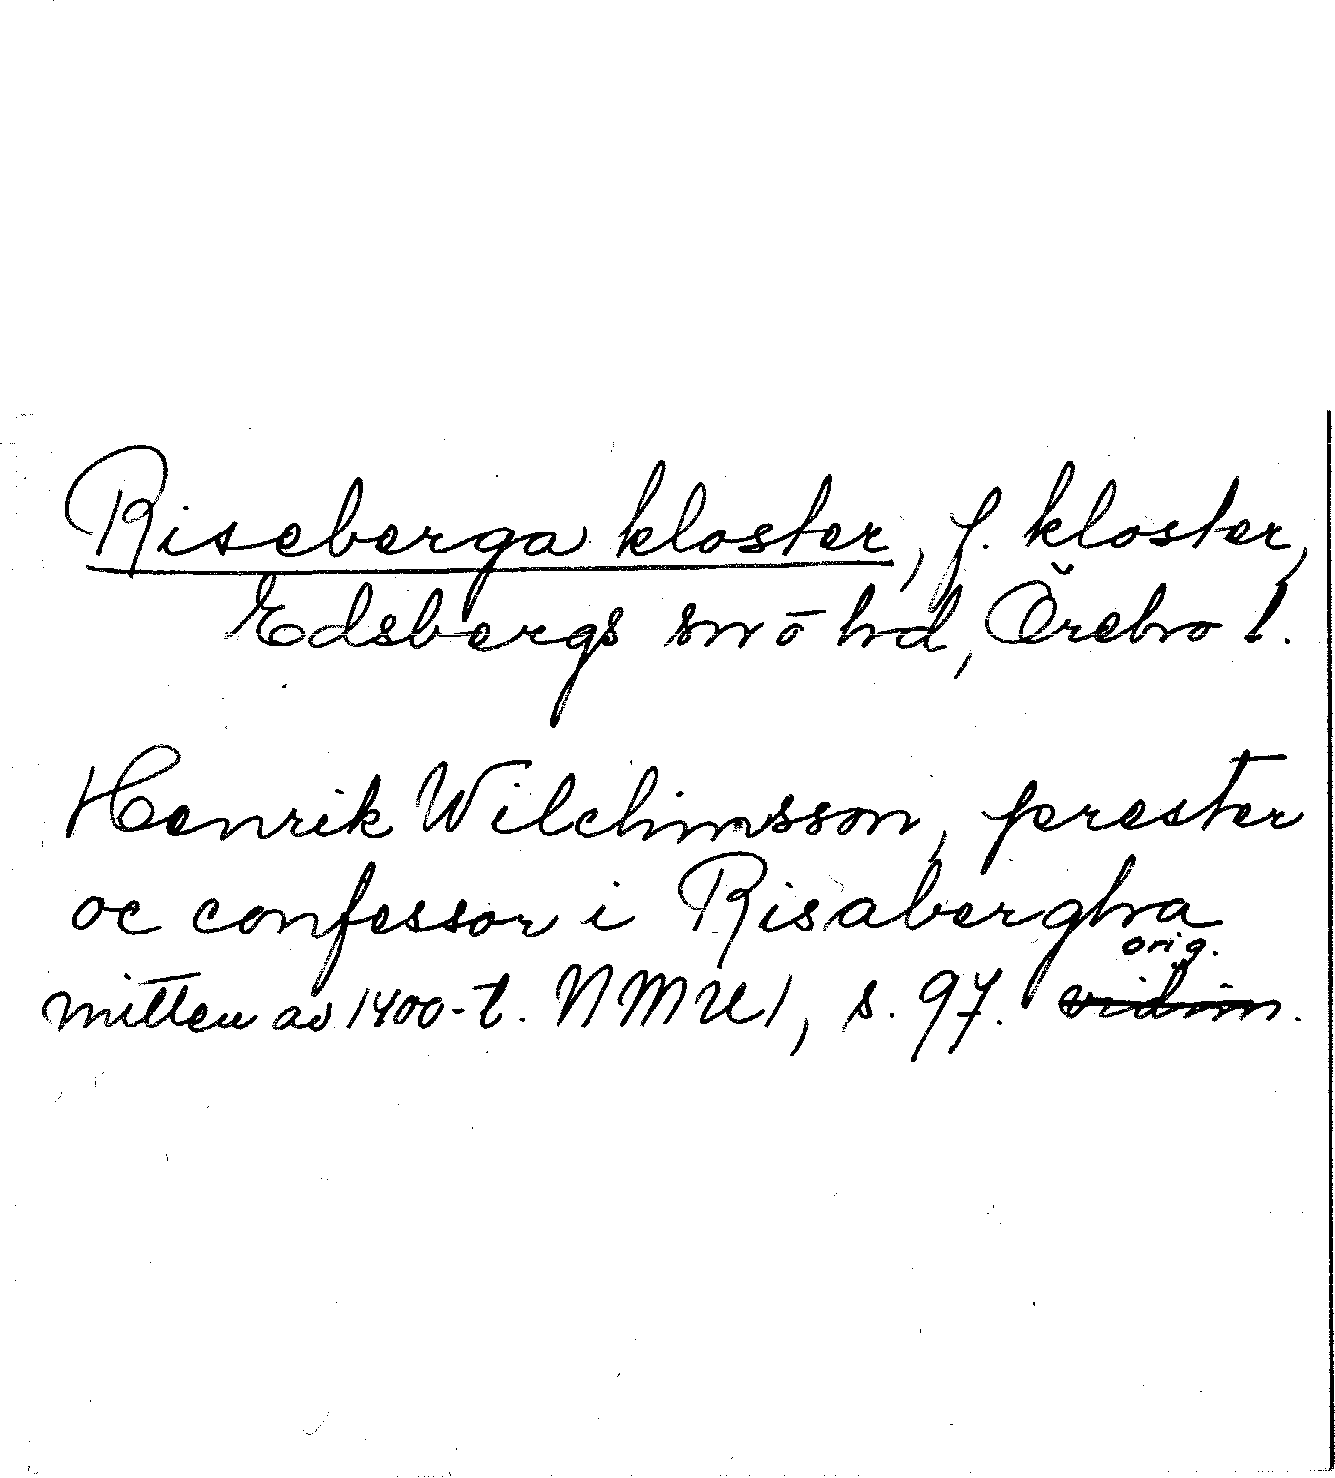 Riseberga kloster, f. kloster,
Edsbergs sn o hd, Örebro l.
Henrik Wilchinsson, prester
oc confessor i Risabergha
orig.
mitten av 1400-t. NMU1, s. 97. vidim.